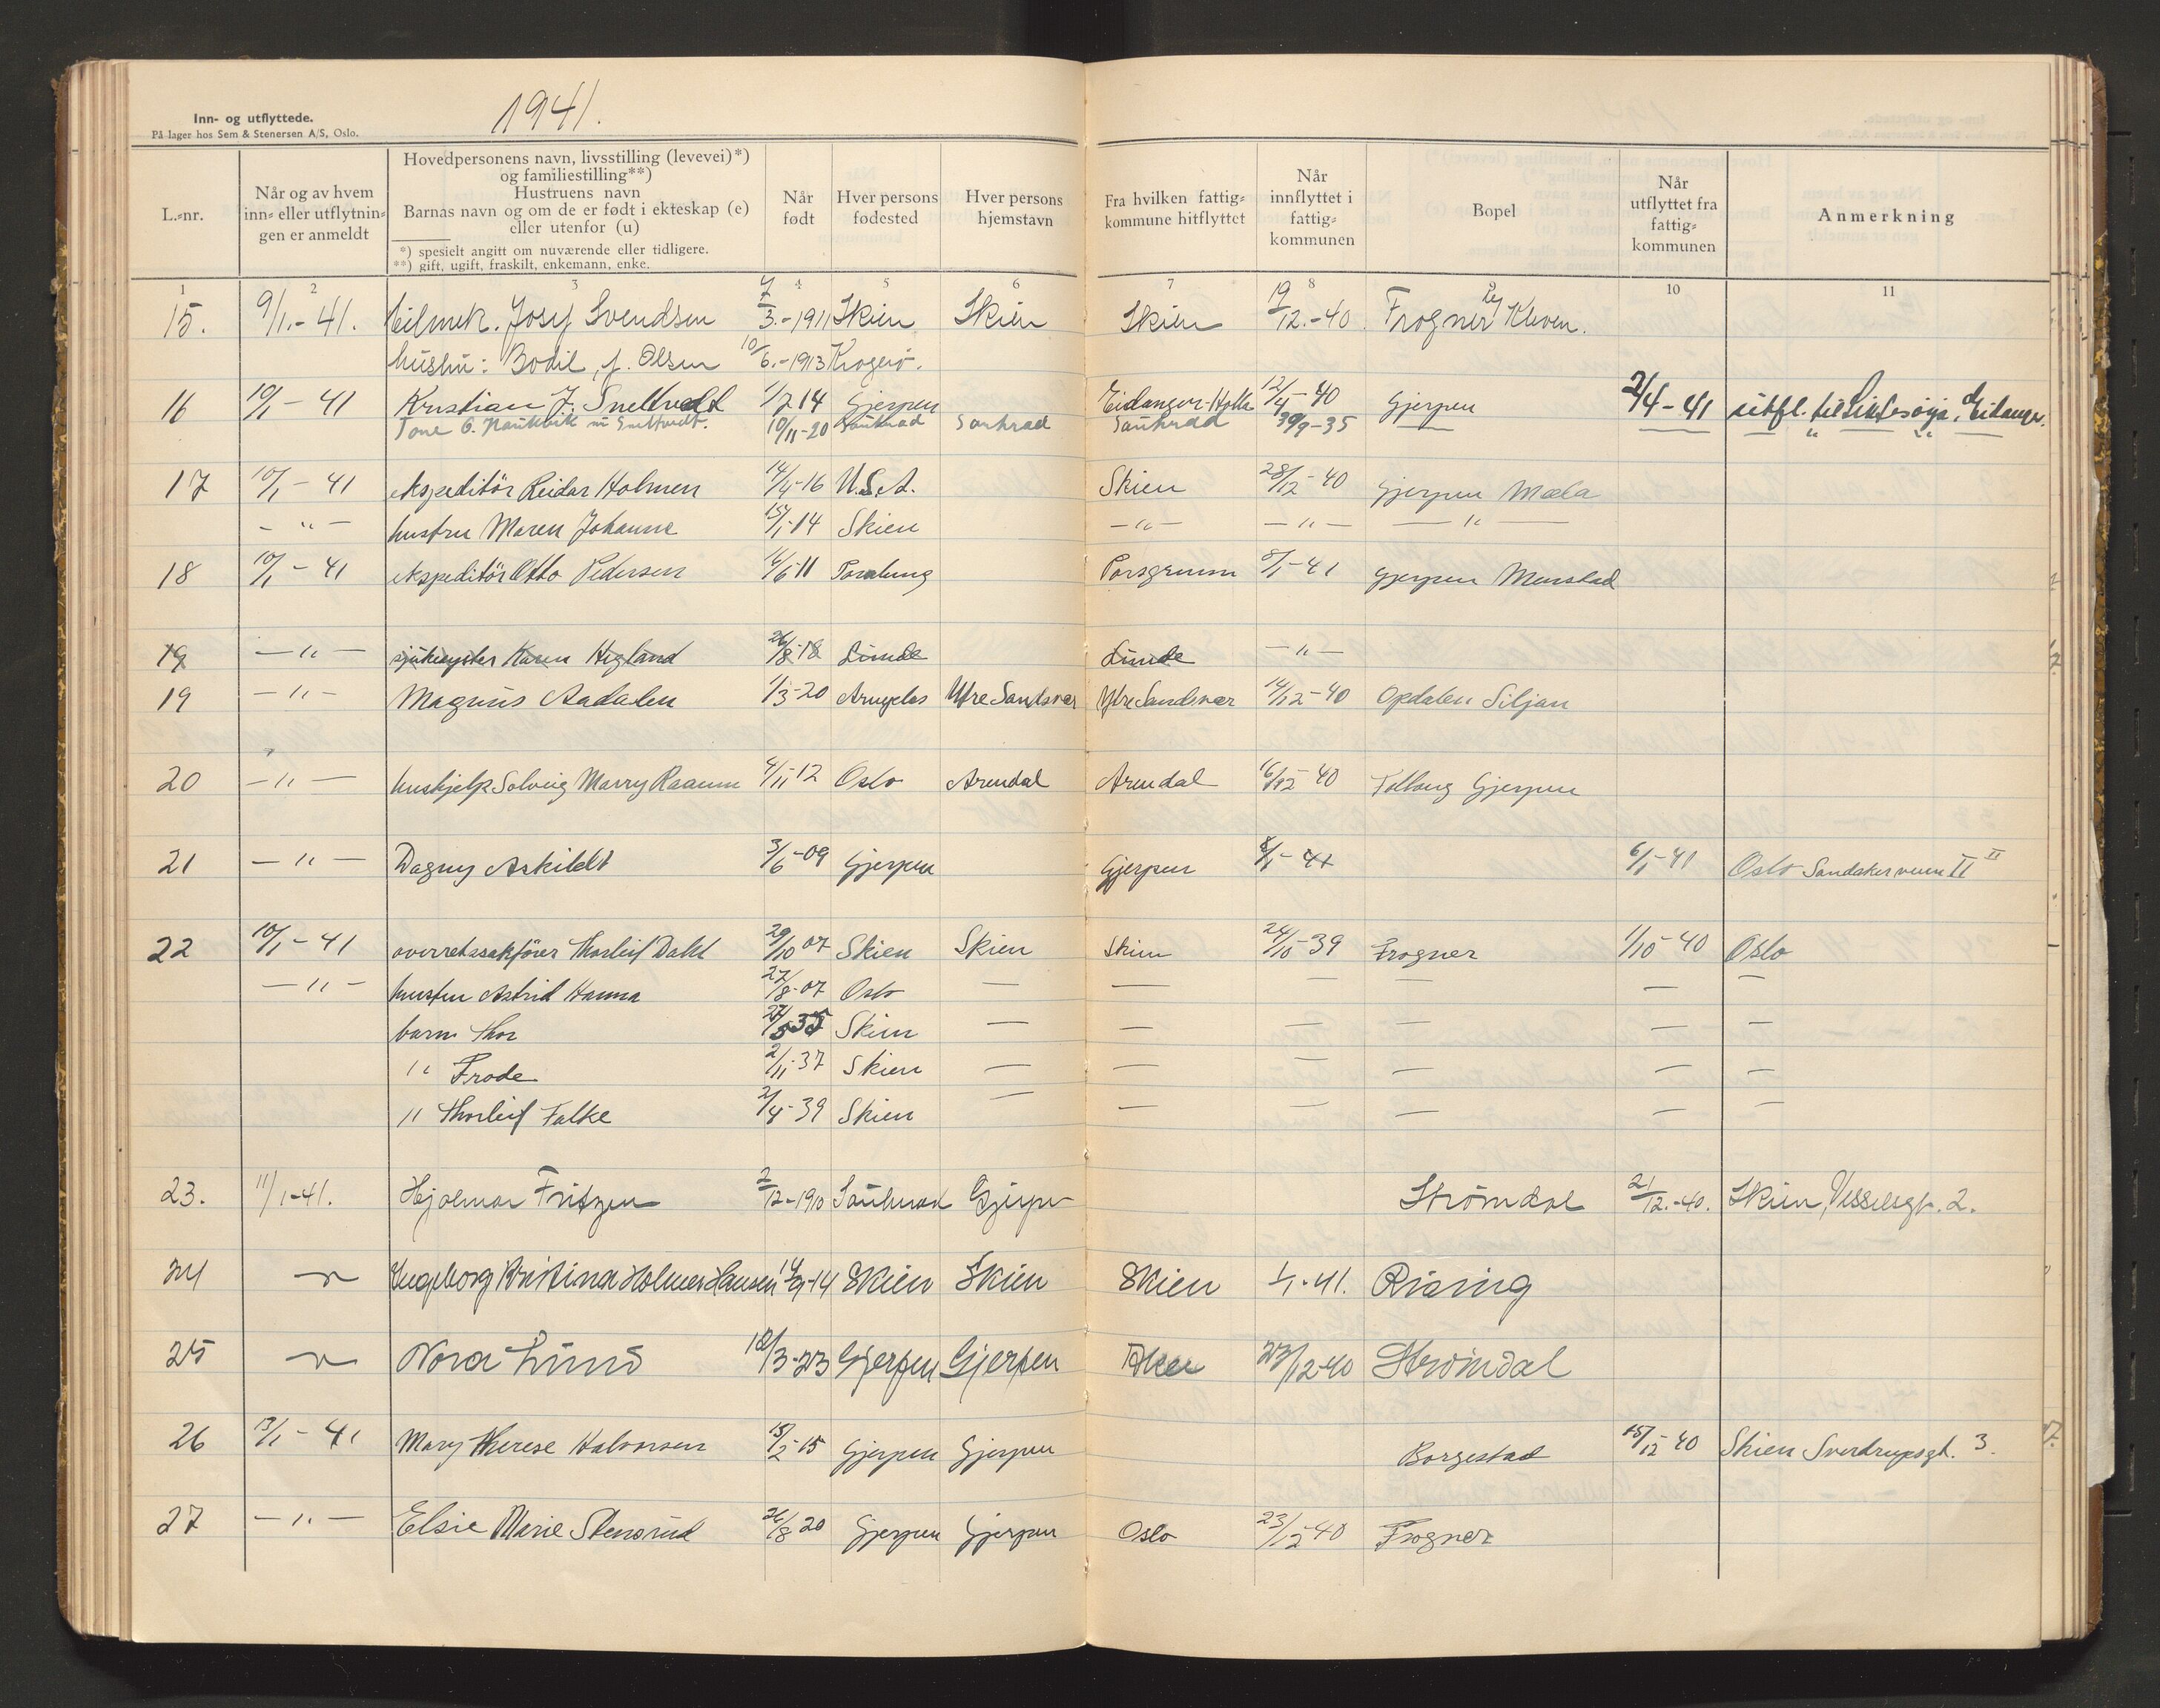 Inn- og utflyttede.
På lager hos Sem & Stenersen A/S, Oslo.
1941.
L.-nr.
Når og av hvem inn- eller utflytningen er anmeldt
Hovedpersonens navn, livsstilling (levevei)*)
og familiestilling**)
Hustruens navn
Barnas navn og om de er født i ekteskap (e)
eller utenfor (u)
*) spesielt angitt om nuværende eller tidligere.
**) gift, ugift, fraskilt, enkemann, enke.
Når født
Hver persons fødested
Hver persons hjemstavn
Fra hvilken fattig-kommune hitflyttet
Når innflyttet i fattig-kommunen
Bopel
Når utflyttet fra fattig-kommunen
Anmerkning
1 2 3 4 5 6 7 8 10 11
15. 9/1.-41. Josef Svendsen 7/3.-1911 Skien Skien Skien 19/12.-40. Frogner Kleven.
hustru: Bodil, f. Olsen 10/6.-1913 Kragerö.
16 10/1-41 Kristian J. Sneltvedt 1/2 14 Gjerpen Eidanger-Holla 12/4-40 Gjerpen 2/4-41 utfl. til Eidanger.
Tone G. Haukvik 10/11-20 Sauherad Sauherad Sauherad 30/9-35
17 10/1-41 ekspeditör Reidar Holmen 14/4-16 U.S.A. Skien 28/12-40 Gjerpen Mæla
-"- hustru Maren Johanne 15/1-14 Skien -"- -"- -"-
18 10/1-41 ekspeditör Otto Pedersen 16/6-11 Porsgrunn 8/1-41 Gjerpen Menstad
19 -"- Karen Higland 26/8-18 Lunde Lunde -"-
19 -"- Magnus Aadalen 1/3-20 Ytre Sandsvær Ytre Sandsvær 14/12-40 Opdalen Siljan
20 -"- hushjelp Solveig Marry Raaum 4/11-12 Oslo Arendal Arendal 16/12-40 Gjerpen
21 -"- Dagny Askildt 3/6-09 Gjerpen Gjerpen 8/1-41 6/1-41 Oslo Sandakerveien II II
22 10/1-41 overretssakfører Thorleif Dahl 29/10 07 Skien Skien Skien 24/10-39 Frogner 1/10-40 Oslo
-"- hustru Astrid Hanna 27/8-07 Oslo — — — — — —
barn Thor 27/5 35 Skien — — — — — —
" Frode 2/11-37 Skien — — — — — —
" Thorleif Falke 2/4-39 Skien — — — — — —
23. 11/1-41. Hjalmar Fritzen 2/12-1910 Sauherad Gjerpen Strömdal 21/12.-40. Skien, Wesselsgt. 2.
24 Ingeborg Kristina Holmer Hansen 14/9-14 Skien Skien Skien 1/1-41. Rising
25 Nora Lund 18/3-23 Gjerpen Gjerpen Aker 23/12-40 Strömdal
26 13/1-41 Mary Therese Halvorsen 15/2-15 Gjerpen Gjerpen Borgestad 15/12-40 Skien Sverdrupsgt. 3.
27 -"- Elsie Marie Stensrud 26/8 20 Gjerpen Gjerpen Oslo 23/12-40 Frogner